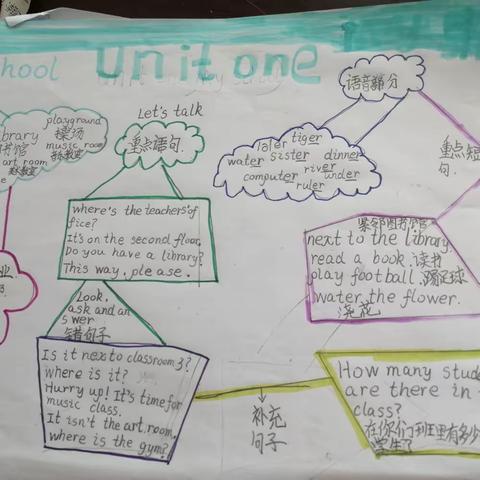 chool
unit one
playground
操场
brary
书馆
music room
音乐教室
art room
Let's talk
重点语句.
where's the teachers'of
fice?
It's on the second floor.
Do you have a library?
This way, please.
Look,
ask and an
swer
Is it next to classroom 3?
where is it?
Hurry up! It's time for
music class.
It isn't the art room.
where is the gym?
语音部分
later tiger
water sister dinner
computer river under
ruler
重点短
句.
紧邻图书馆
next to the library.
read a book.读书
play football.踢足球
water the flower.
浇花
补充
句子
How many stude
are there in
class?
在你们班里有多少
学生?